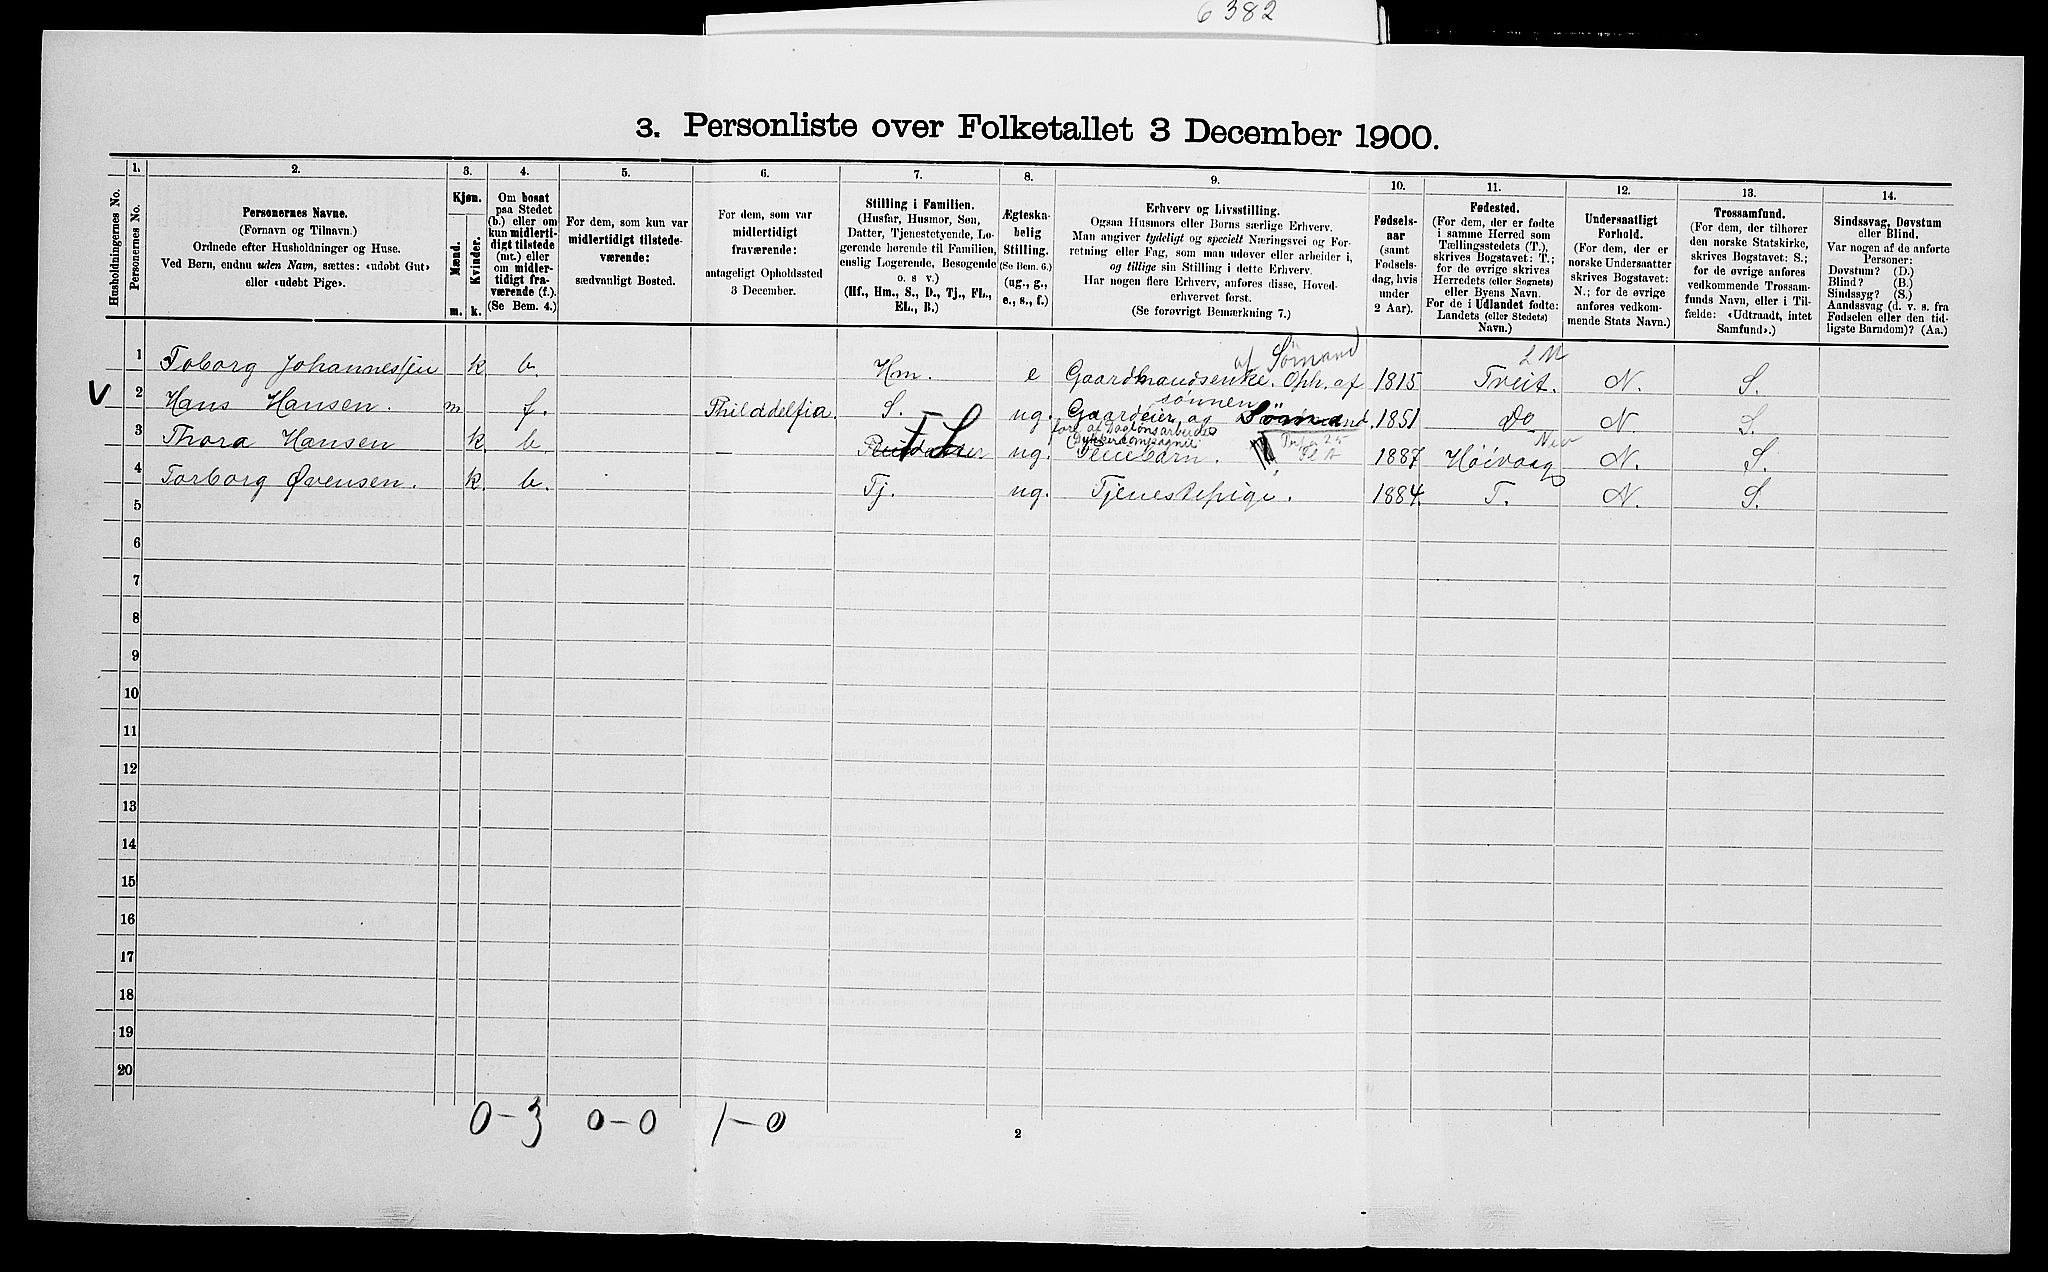 6382
3. Personliste over Folketallet 3 December 1900.
Husholdningernes No.
1.
Personernes No.
2.
Personernes Navne.
(Fornavn og Tilnavn.)
Ordnede efter Husholdninger og Huse.
Ved Børn, endnu uden Navn, sættes: «udøbt Gut»
eller «udøbt Pige».
3.
Kjøn.
Mænd.
Kvinder.
m. k.
4.
Om bosat
paa Stedet
(b.) eller om
kun midlerti-
digt tilstede
(mt.) eller
om midler-
tidigt fra-
værende (f.).
(Se Bem. 4.)
5.
For dem, som kun var
midlertidigt tilstede-
værende:
sædvanligt Bosted.
6.
For dem, som var
midlertidigt
fraværende:
antageligt Opholdssted
3 December.
7.
Stilling i Familien.
(Husfar, Husmor, Søn,
Datter, Tjenestetyende, Lo-
gerende hørende til Familien,
enslig Logerende, Besøgende
o. s v.)
(Hf., Hm., S., D., Tj., FL.,
EL., B.)
8.
Ægteska-
belig
Stilling.
(Se Bem. 6.)
(ug., g.,
e., s., f.)
9.
Erhverv og Livsstilling.
Ogsaa Husmors eller Børns særlige Erhverv.
Man angiver tydeligt og specielt Næringsvei og For-
retning eller Fag, som man udøver eller arbeider i,
og tillige sin Stilling i dette Erhverv.
Har nogen flere Erhverv, anføres disse, Hoved-
erhvervet først.
(Se forøvrigt Bemærkning 7.)
10.
Fødsels-
aar
(samt
Fødsels-
dag, hvis
under
2 Aar).
11.
Fødested.
(For dem, der er fødte
i samme Herred som
Tællingsstedets (T.),
skrives Bogstavet: T.;
for de øvrige skrives
Herredets (eller Sognets)
eller Byens Navn.
For de i Udlandet fødte:
Landets (eller Stedets)
Navn.)
12.
Undersaatligt
Forhold.
(For dem, der er
norske Undersaatter
skrives Bogstavet:
N.; for de øvrige
anføres vedkom-
mende Stats Navn.)
13.
Trossamfund.
(For dem, der tilhører
den norske Statskirke,
skrives Bogstavet: S.;
for de øvrige anføres
vedkommende Trossam-
funds Navn, eller i Til-
fælde: «Udtraadt, intet
Samfund».)
14.
Sindssvag, Døvstum
eller Blind.
Var nogen af de anførte
Personer:
Døvstum? (D.)
Blind? (B.)
Sindssyg? (S.)
Aandssvag (d. v. s. fra
Fødselen eller den tid-
ligste Barndom)? (Aa.)
af Sømand
1 Toborg Johannessen k b. Hm. e Gaardmandsenke. Oph. af 1815 Tveit. N. S.
sønnen
V 2 Hans Hansen. m f. Philddelfia. S. ug. Gaardeier og Sømand. 1851 Do N S.
3 Thora Hansen k b. — FL ug. Pleiebarn. 1887 Høivaag N. S.
4 Torborg Øvensen. k. b. Tj. ug. Tjenestepige. 1884. T. N. S.
5
6
7
8
9
10
11
12
13
14
15
16
17
18
19
20
0-3 0-0 1-0
2